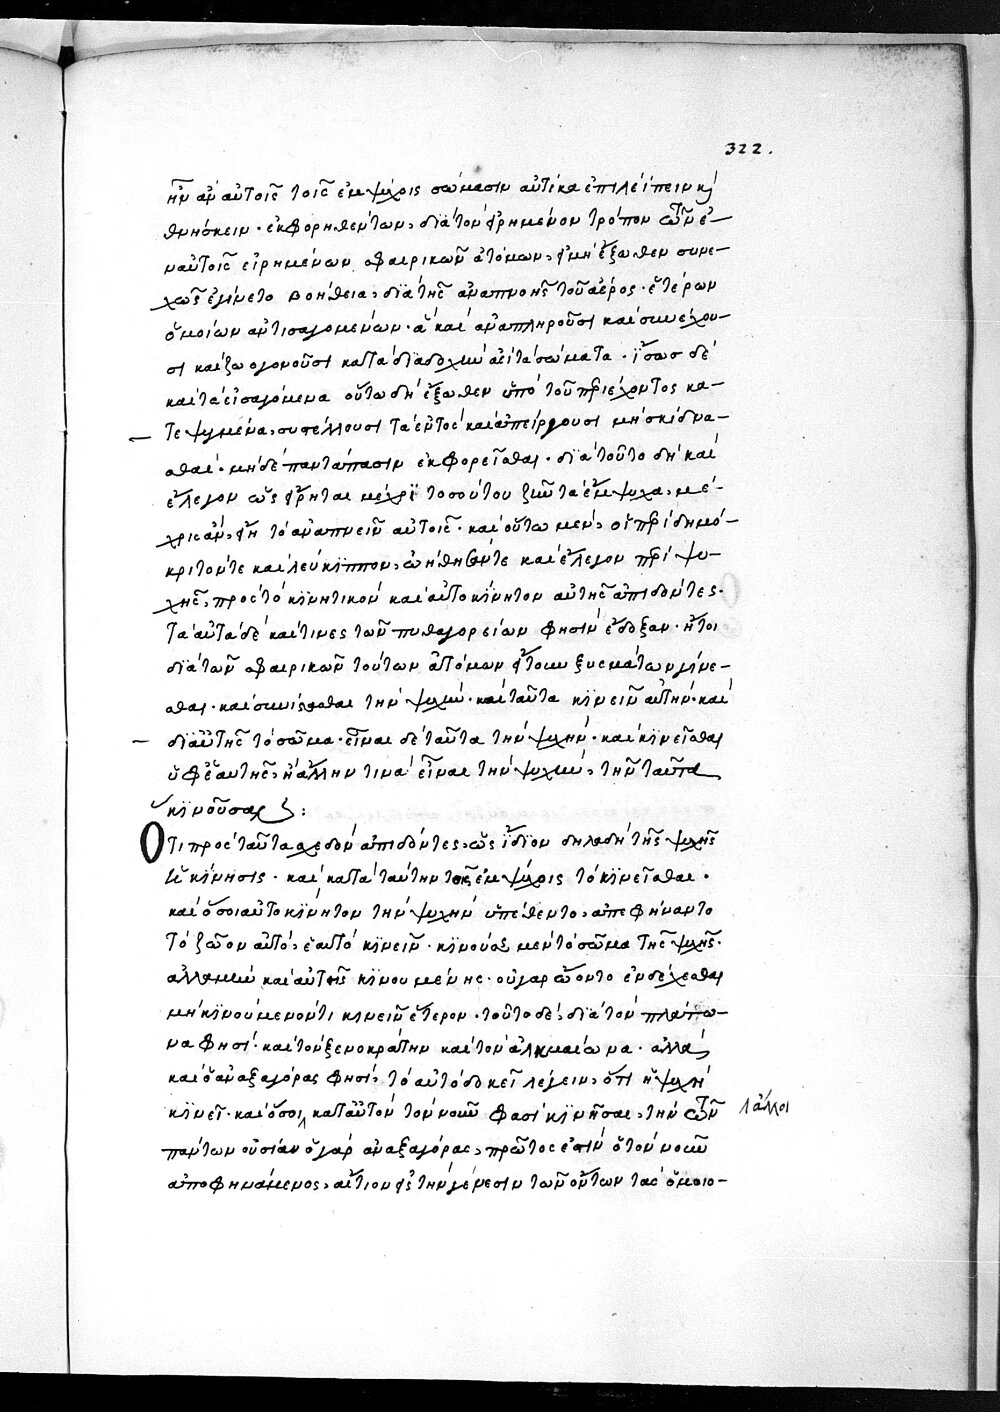 322.
ἦν ἂν αὐτοῖς τοῖς ἐμψύχοις σώμασιν αὐτίκα ἐπιλείπειν καὶ
θνήσκειν· ἐκφορηθέντων, διὰ τὸν εἰρημένον τρόπον τῶν ἐ-
ναὐτοῖς εἰρημένων σφαιρικῶν ἀτόμων, εἰ μὴ ἔξωθεν συνε-
χῶς ἐγίνετο βοήθεια, διὰ τῆς ἀναπνοῆς τοῦ ἀέρος· ἑτέρων
ὁμοίων ἀντισαγομένων· ἃ καὶ ἀναπληροῦσι καὶ συνέχου-
σι καὶ ζωογονοῦσι κατὰ διαδοχὴν ἀεὶ τὰ σώματα· ἴσως δὲ
καὶ τὰ εἰσαγόμενα οὕτω δὴ ἔξωθεν ὑπὸ τοῦ περιέχοντος κα-
τεψυγμένα, συστέλλουσι τὰ ἐντὸς καὶ ἀπείργουσι μὴ σκίδνα-
σθαι· μηδὲ παντάπασιν ἐκφορεῖσθαι· διὰ τοῦτο δὴ καὶ
ἔλεγον ὡς εἴρηται μέχρι τοσούτου ζῆν τὰ ἔμψυχα, μέ-
χρις ἂν, ᾖ τὸ ἀναπνεῖν αὐτοῖς· καὶ οὕτω μὲν, οἱ περὶ δημό-
κριτόν τε καὶ λεύκιππον, ᾠήθησάν τε καὶ ἔλεγον περὶ ψυ-
χῆς, πρὸς τὸ κινητικὸν καὶ αὐτοκίνητον αὐτῆς ἀπιδόντες.
Τὰ αὐτὰ δὲ καί τινες τῶν πυθαγορείων φησὶν ἔδοξαν· ἤτοι
διὰ τῶν σφαιρικῶν τούτων ἀτόμων εἴτουν ξυσμάτων γίνε-
σθαι· καὶ συνίστασθαι τὴν ψυχήν· καὶ ταῦτα κινεῖν αὐτήν· καὶ
διαὐτῆς τὸ σῶμα· εἶναι δὲ ταῦτα τὴν ψυχήν· καὶ κινεῖσθαι
ὑφἑαυτῆς, ἢ ἄλλην τινὰ εἶναι τὴν ψυχὴν, τὴν ταῦτα
κινοῦσαν:
Ὅτι πρὸς ταῦτα σχεδὸν ἀπιδόντες, ὡς ἴδιον δηλαδὴ τῆς ψυχῆς
ἡ κίνησις· καὶ κατὰ ταύτην τοῖς ἐμψύχοις τὸ κινεῖσθαι.
καὶ ὅσοι αὐτοκίνητον τὴν ψυχὴν ὑπέθεντο, ἀπεφήναντο
τὸ ζῶον αὐτὸ, ἑαυτὸ κινεῖν· κινούσης μὲν τὸ σῶμα τῆς ψυχῆς·
ἀλλαμὴν καὶ αὐτῆς κινουμένης· οὐ γὰρ ᾤοντο ἐνδέχεσθαι
μὴ κινούμενόν τι κινεῖν ἕτερον· τοῦτο δὲ, διὰ τὸν πλάτω-
να φησί· καὶ τὸν ξενοκράτην καὶ τὸν ἀλκμαίωνα· ἀλλὰ
καὶ ὁ ἀναξαγόρας φησὶ, τὸ αὐτὸ δοκεῖ λέγειν, ὅτι ἡ ψυχὴ
κινεῖ· καὶ ὅσοι κατ αὐτὸν τὸν νοῦν φασὶ κινῆσαι, τὴν τῶν
ἄλλοι
πάντων οὐσίαν ὁ γὰρ ἀναξαγόρας, πρῶτος ἐστὶν ὁ τὸν νοῦν
ἀποφηνάμενος, αἴτιον εἰς τὴν γένεσιν τῶν ὄντων τὰς ὁμοιο-